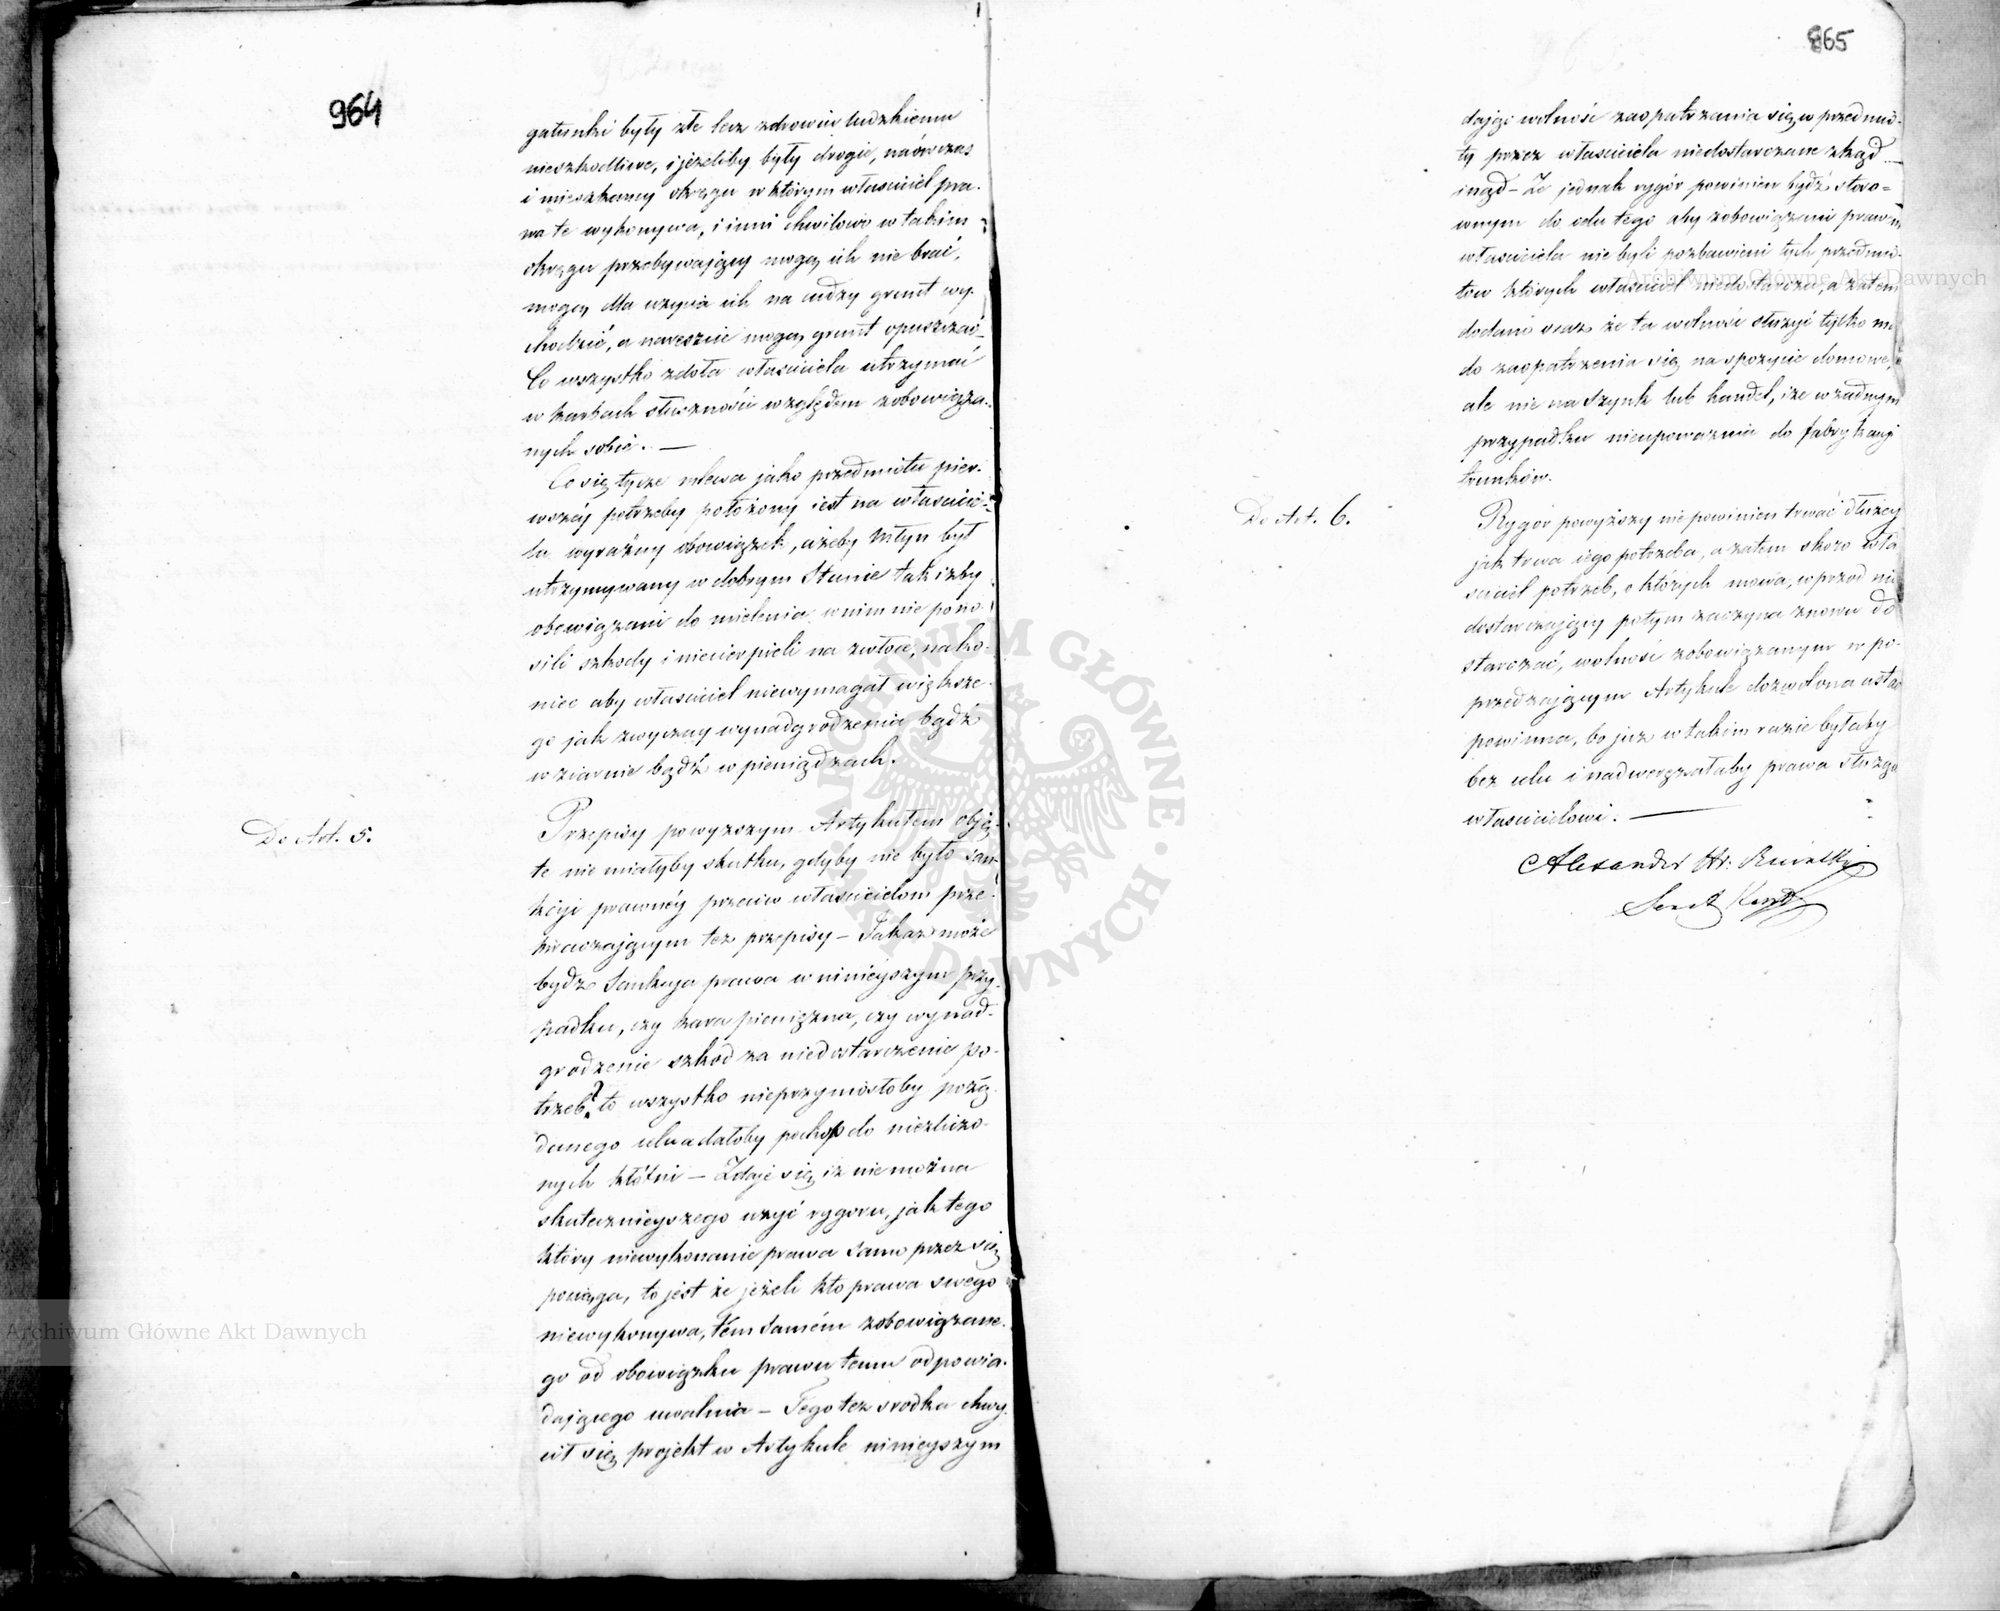 964
gatunki były złe lecz zdrowiu ludzkiemu
nieszkodliwe, i jeżeliby były drogie, naówczas
i mieszkancy okręgu w którym właściciel pra-
wa te wykonywa, i inni chwilowo w takim
okręgu przebywaiący mogą ich nie brać,
mogą dla użycia ich na cudzy grunt wy-
chodzić, a nareszcie mogą grunt opuszczać
Co wszystko zdoła właściciela utrzymać
w karbach słuszności względem zobowiąza-
nych sobie. —
Co się tycze mlewa jako przedmiotu pier-
wszéy potrzeby położony iest na właścicie-
la wyraźny obowiązek, ażeby Młyn był
utrzymywany w dobrym Stanie tak iżby
obowiązani do mielenia w nim nie pono-
sili szkody i niecierpieli na zwłoce, nako-
niec aby właściciel niewymagał większe-
go jak zwyczay wynadgrodzenia bądź
w ziarnie bądź w pieniądzach.
Do Art. 5.
Przepisy powyższym Artykułem obję-
te nie miałyby skutku, gdyby nie było San-
kcyi prawnéy przeciw właścicielom prze-
kraczaiącym też przepisy — Jakaż może
bydź Sankcya prawa w ninieyszym przy-
padku, czy kara pieniężna, czy wynad-
grodzenie szkód za niedostarczenie po-
trzeb? to wszystko nieprzyniosłoby pożą-
danego celu a dałoby pochop do niezliczo-
nych kłótni — Zdaje się iż nie można
skutecznieyszego użyć rygoru, jak tego
który niewykonanie prawa samo przez się
pociąga, to jest że jeżeli kto prawa swego
niewykonywa, tém samém zobowiązane-
go od obowiązku prawu temu odpowia-
daiącego uwalnia — Tego też srodka chwy-
cił się projekt w Artykule ninieyszym
865
dając wolność zaopatrzania się w przedmio-
ty przez właściciela niedostarczane zkąd
inąd — Że jednak rygór powinien bydź stoso-
wnym do celu tego aby zobowiązani prawem
właściciela nie byli pozbawieni tych przedmio-
tow których właściciel niedostarcza, a zatem
dodano oraz że ta wolność służyć tylko ma
do zaopatrzenia się na spożycie domowe,
ale nie na szynk lub handel, i że w żadnym
przypadku nieupoważnia do fabrykacyi
trunków.
Do Art. 6.
Rygór powyższy nie powinien trwać dłużey
jak trwa iego potrzeba, a zatem skoro wła
ściciel potrzeb, o których mowa, wprzod nie
dostarczaiący potym zaczyna znowu do
starczać, wolność zobowiązanym w po-
przedzaiącym Artykule dozwolona ustać
powinna, bo już w takim razie byłaby
bez celu i nadwerężałaby prawa służące
właścicielowi. —
Alexander Hr:
Archiwum Główne Akt Dawnych
Archiwum Główne Akt Dawnych
ARCHIWUM GŁÓWNE • AKT DAWNYCH •